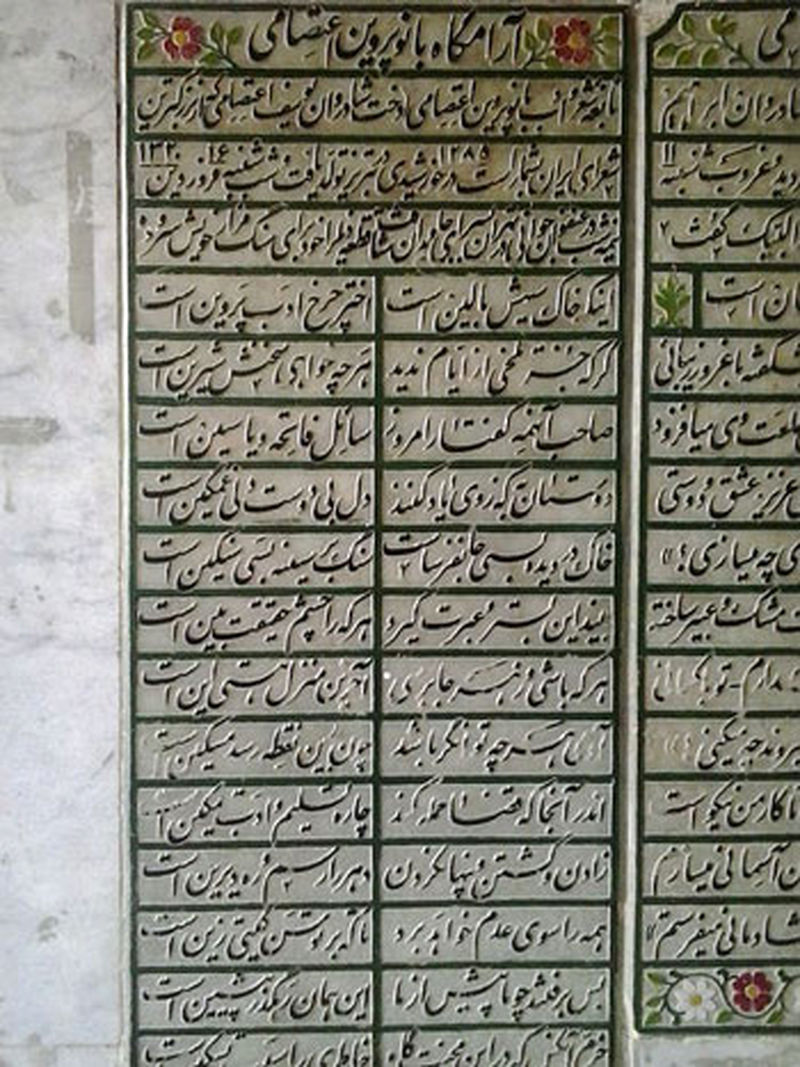 آرامگاه بانو پروین اعتصامی
نابغه شعر و ادب بانو پروین اعتصامی دخت شادروان یوسف اعتصامی که از بزرگترین
شعرای ایران بشمار است در ۱۲۸۵ خورشیدی در تبریز تولد یافت و شب شنبه ۱۶ فروردین ۱۳۲۰
نیمه شب در عنفوان جوانی در تهران بسرای جاودان شتافت قطعه ذیل را خود برای سنگ مزار خویش سروده
اینکه خاک سیهش بالین است اختر چرخ ادب پروین است
گر که جز تلخی از ایام ندید هر چه خواهی سخنش شیرین است
صاحب آنهمه گفتار امروز سائل فاتحه و یاسین است
دوستان به که ز وی یاد کنند دل بی دوست دلی غمگین است
خاک در دیده بسی جانفرساست سنگ بر سینه بسی سنگین است
بیند این بستر و عبرت گیرد هر که را چشم حقیقت بین است
هر که باشی و ز هر جا برسی آخرین منزل هستی این است
آدمی هر چه توانگر باشد چون بدین نقطه رسد مسکین است
اندر آنجا که قضا حمله کند چاره تسلیم و ادب تمکین است
زادن و کشتن و پنهان کردن دهر را رسم و ره دیرین است
همه را سوی عدم خواهد برد تا که بر توسن گیتی زین است
بس برفتند چو ما پیش از ما این همان رهگذر پیشین است
خرم آنکس که در این محنت گاه خاطری را سبب تسکین است
می
شادروان ابراهیم
۱۱
و غروب شنبه
گفت
ان است
شکفته با غرور زیبائی
وی میافزود
عزیز عشق و دوستی
ی چه میسازی؟»
مشک و عبیر ساخته
دارم - تو
میکنی
تا کار من نیکو است
آسمانی میسازم
شادمانی میفرستم»